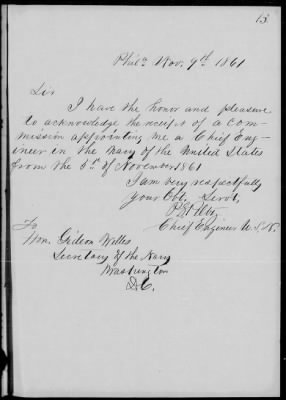 13.
Phila Nov. 9th 1861
Sir
I have the honor and pleasure
to acknowledge the receipt of a com-
mission appointing me a Chief Eng-
ineer in the Navy of the United States
from the 5th of November 1861
I am very respectfully
your Obt. Servt,
Chief Engineer U.S.N.
To
Hon. Gideon Welles
Secretary of the Navy
Washington
D.C.